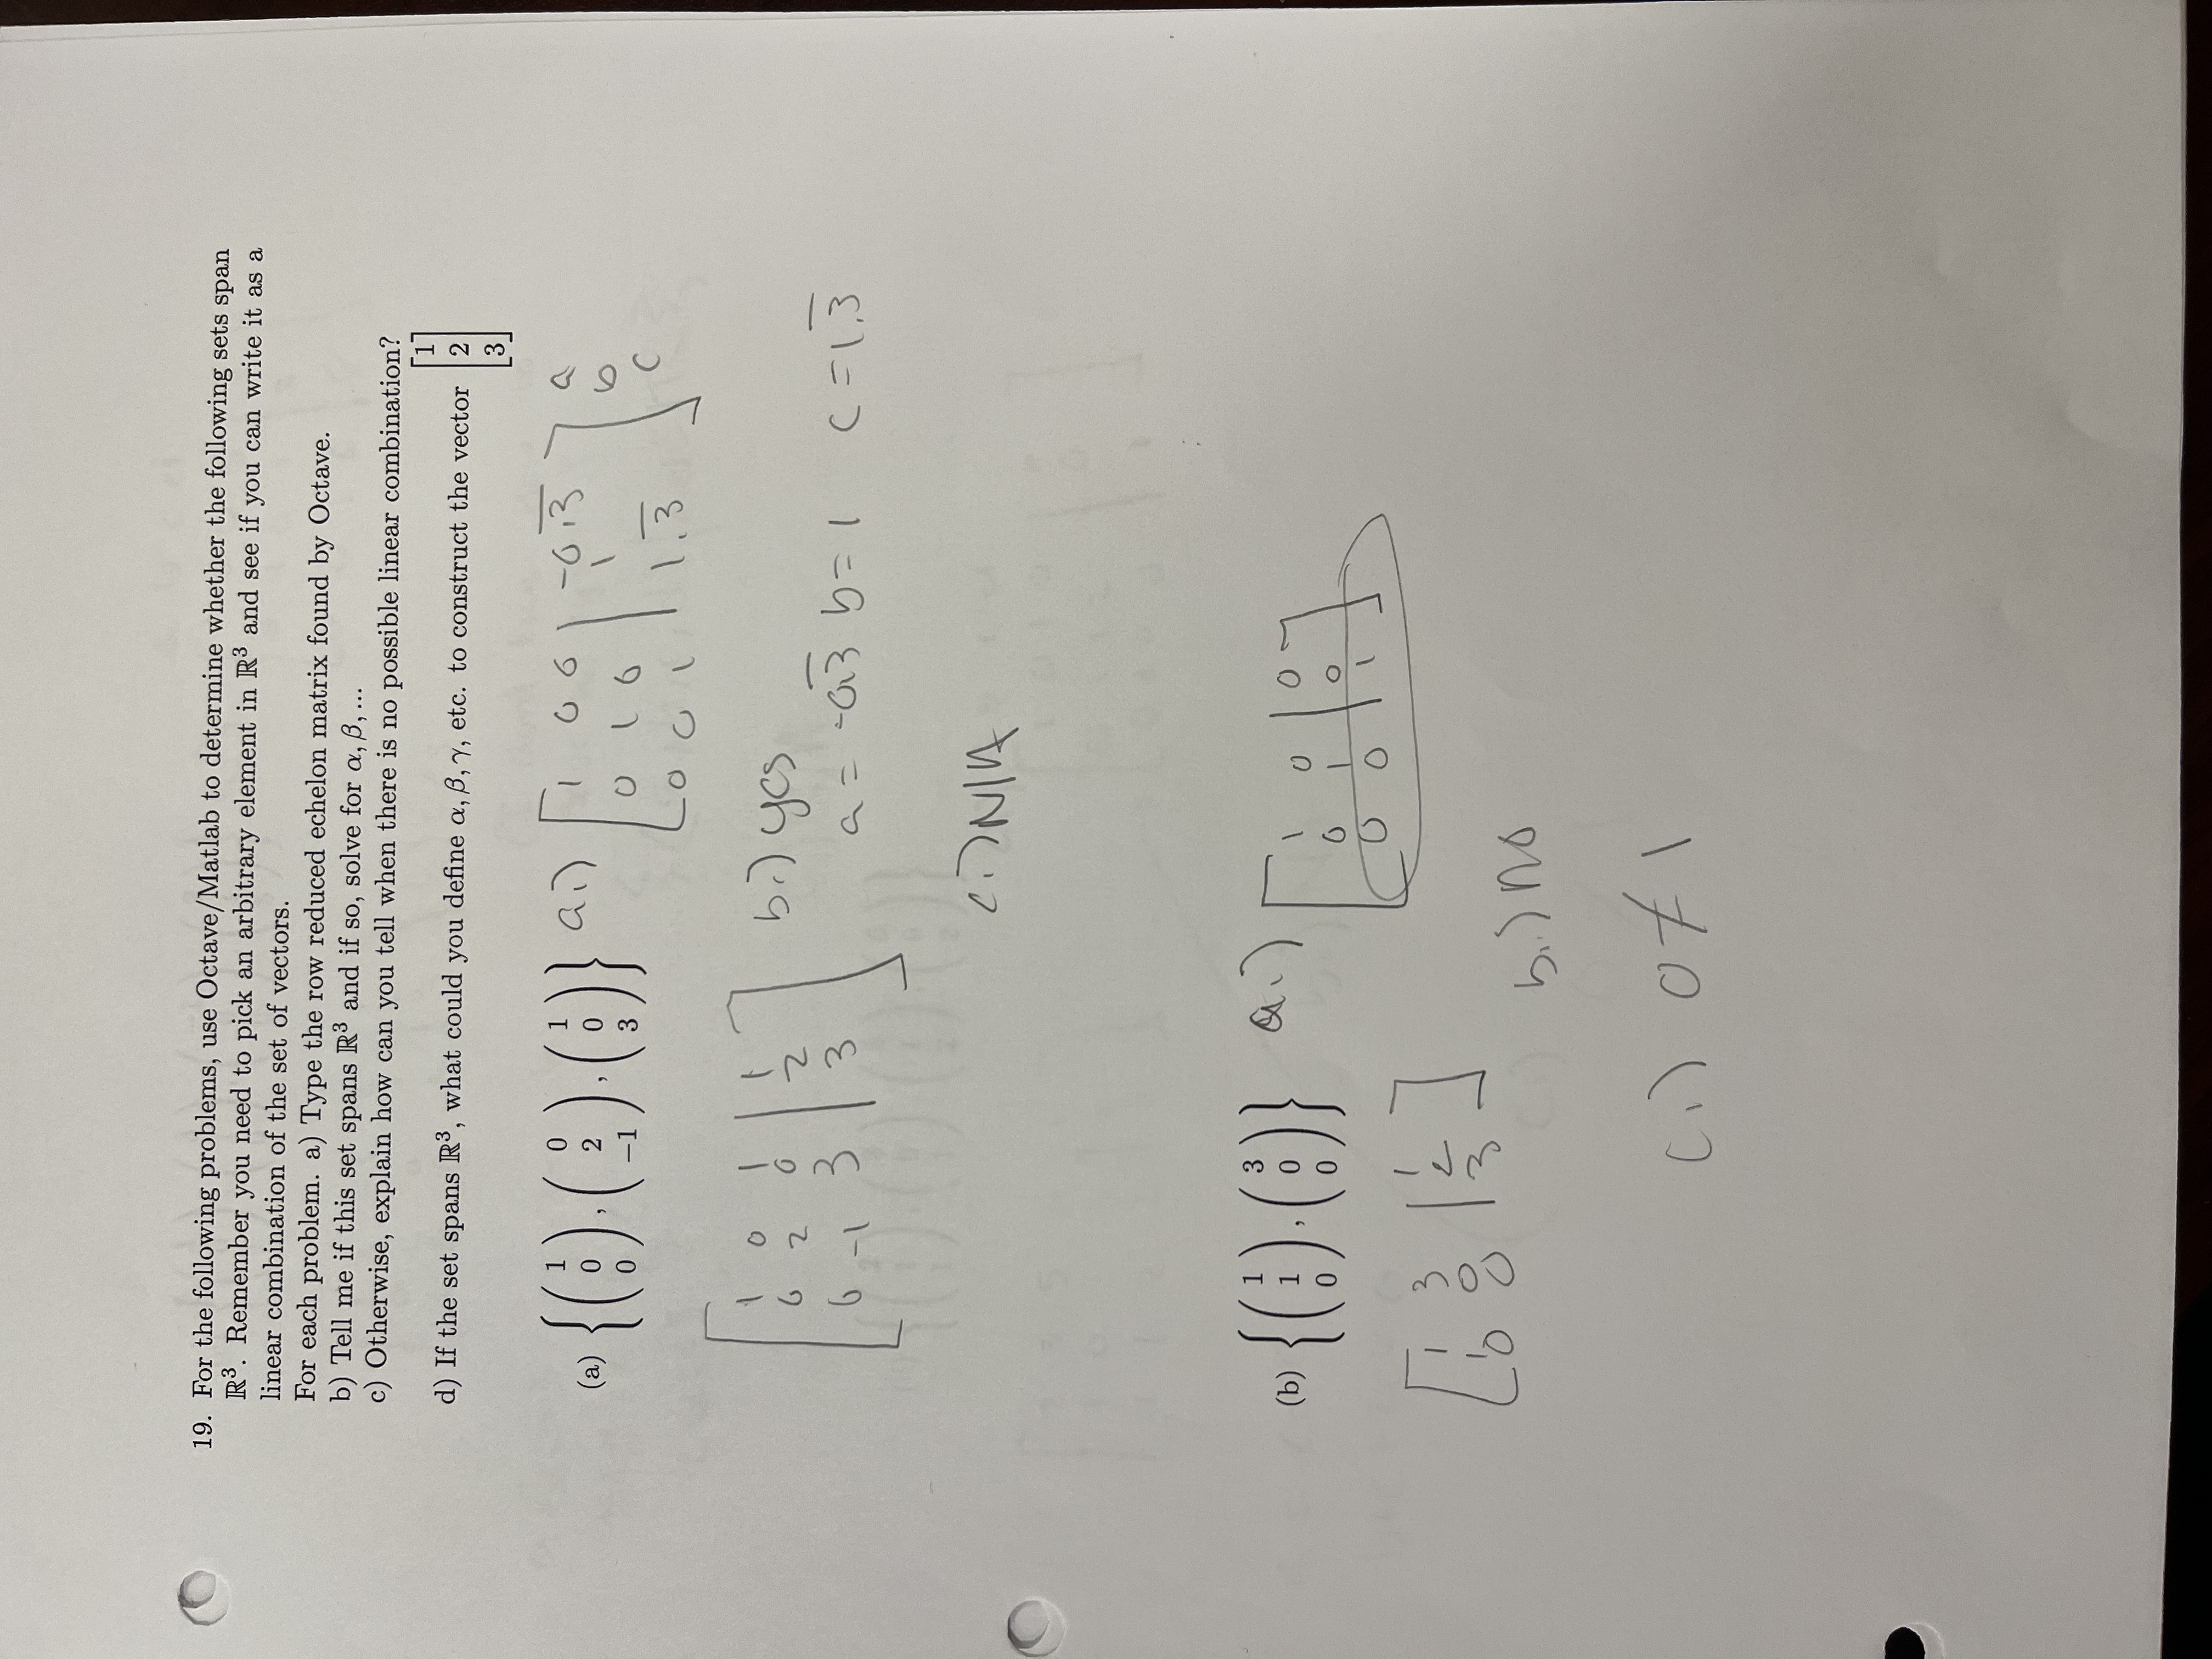 19. For the following problems, use Octave/Matlab to determine whether the following sets span
ℝ³. Remember you need to pick an arbitrary element in ℝ³ and see if you can write it as a
linear combination of the set of vectors.
For each problem. a) Type the row reduced echelon matrix found by Octave.
b) Tell me if this set spans ℝ³ and if so, solve for α, β, ...
c) Otherwise, explain how can you tell when there is no possible linear combination?
d) If the set spans ℝ³, what could you define α, β, γ, etc. to construct the vector [1 2 3]
(a) {(1 0 0), (0 2 -1), (1 0 3)} a.)
[1 0 0 | -0.3̅] a
[0 1 0 | 1] b
[0 0 1 | 1.3̅] c
[1 0 1 | 1]
[0 2 0 | 2]
[0 -1 3 | 3]
b.) yes
a = -0.3̅ b = 1 c = 1.3̅
c.) N/A
(b) {(1 1 0), (3 0 0)} a.)
[1 0 | 0]
[0 1 | 0]
[0 0 | 1]
[1 3 | 1]
[1 0 | 2]
[0 0 | 3]
b.) no
c.) 0 ≠ 1